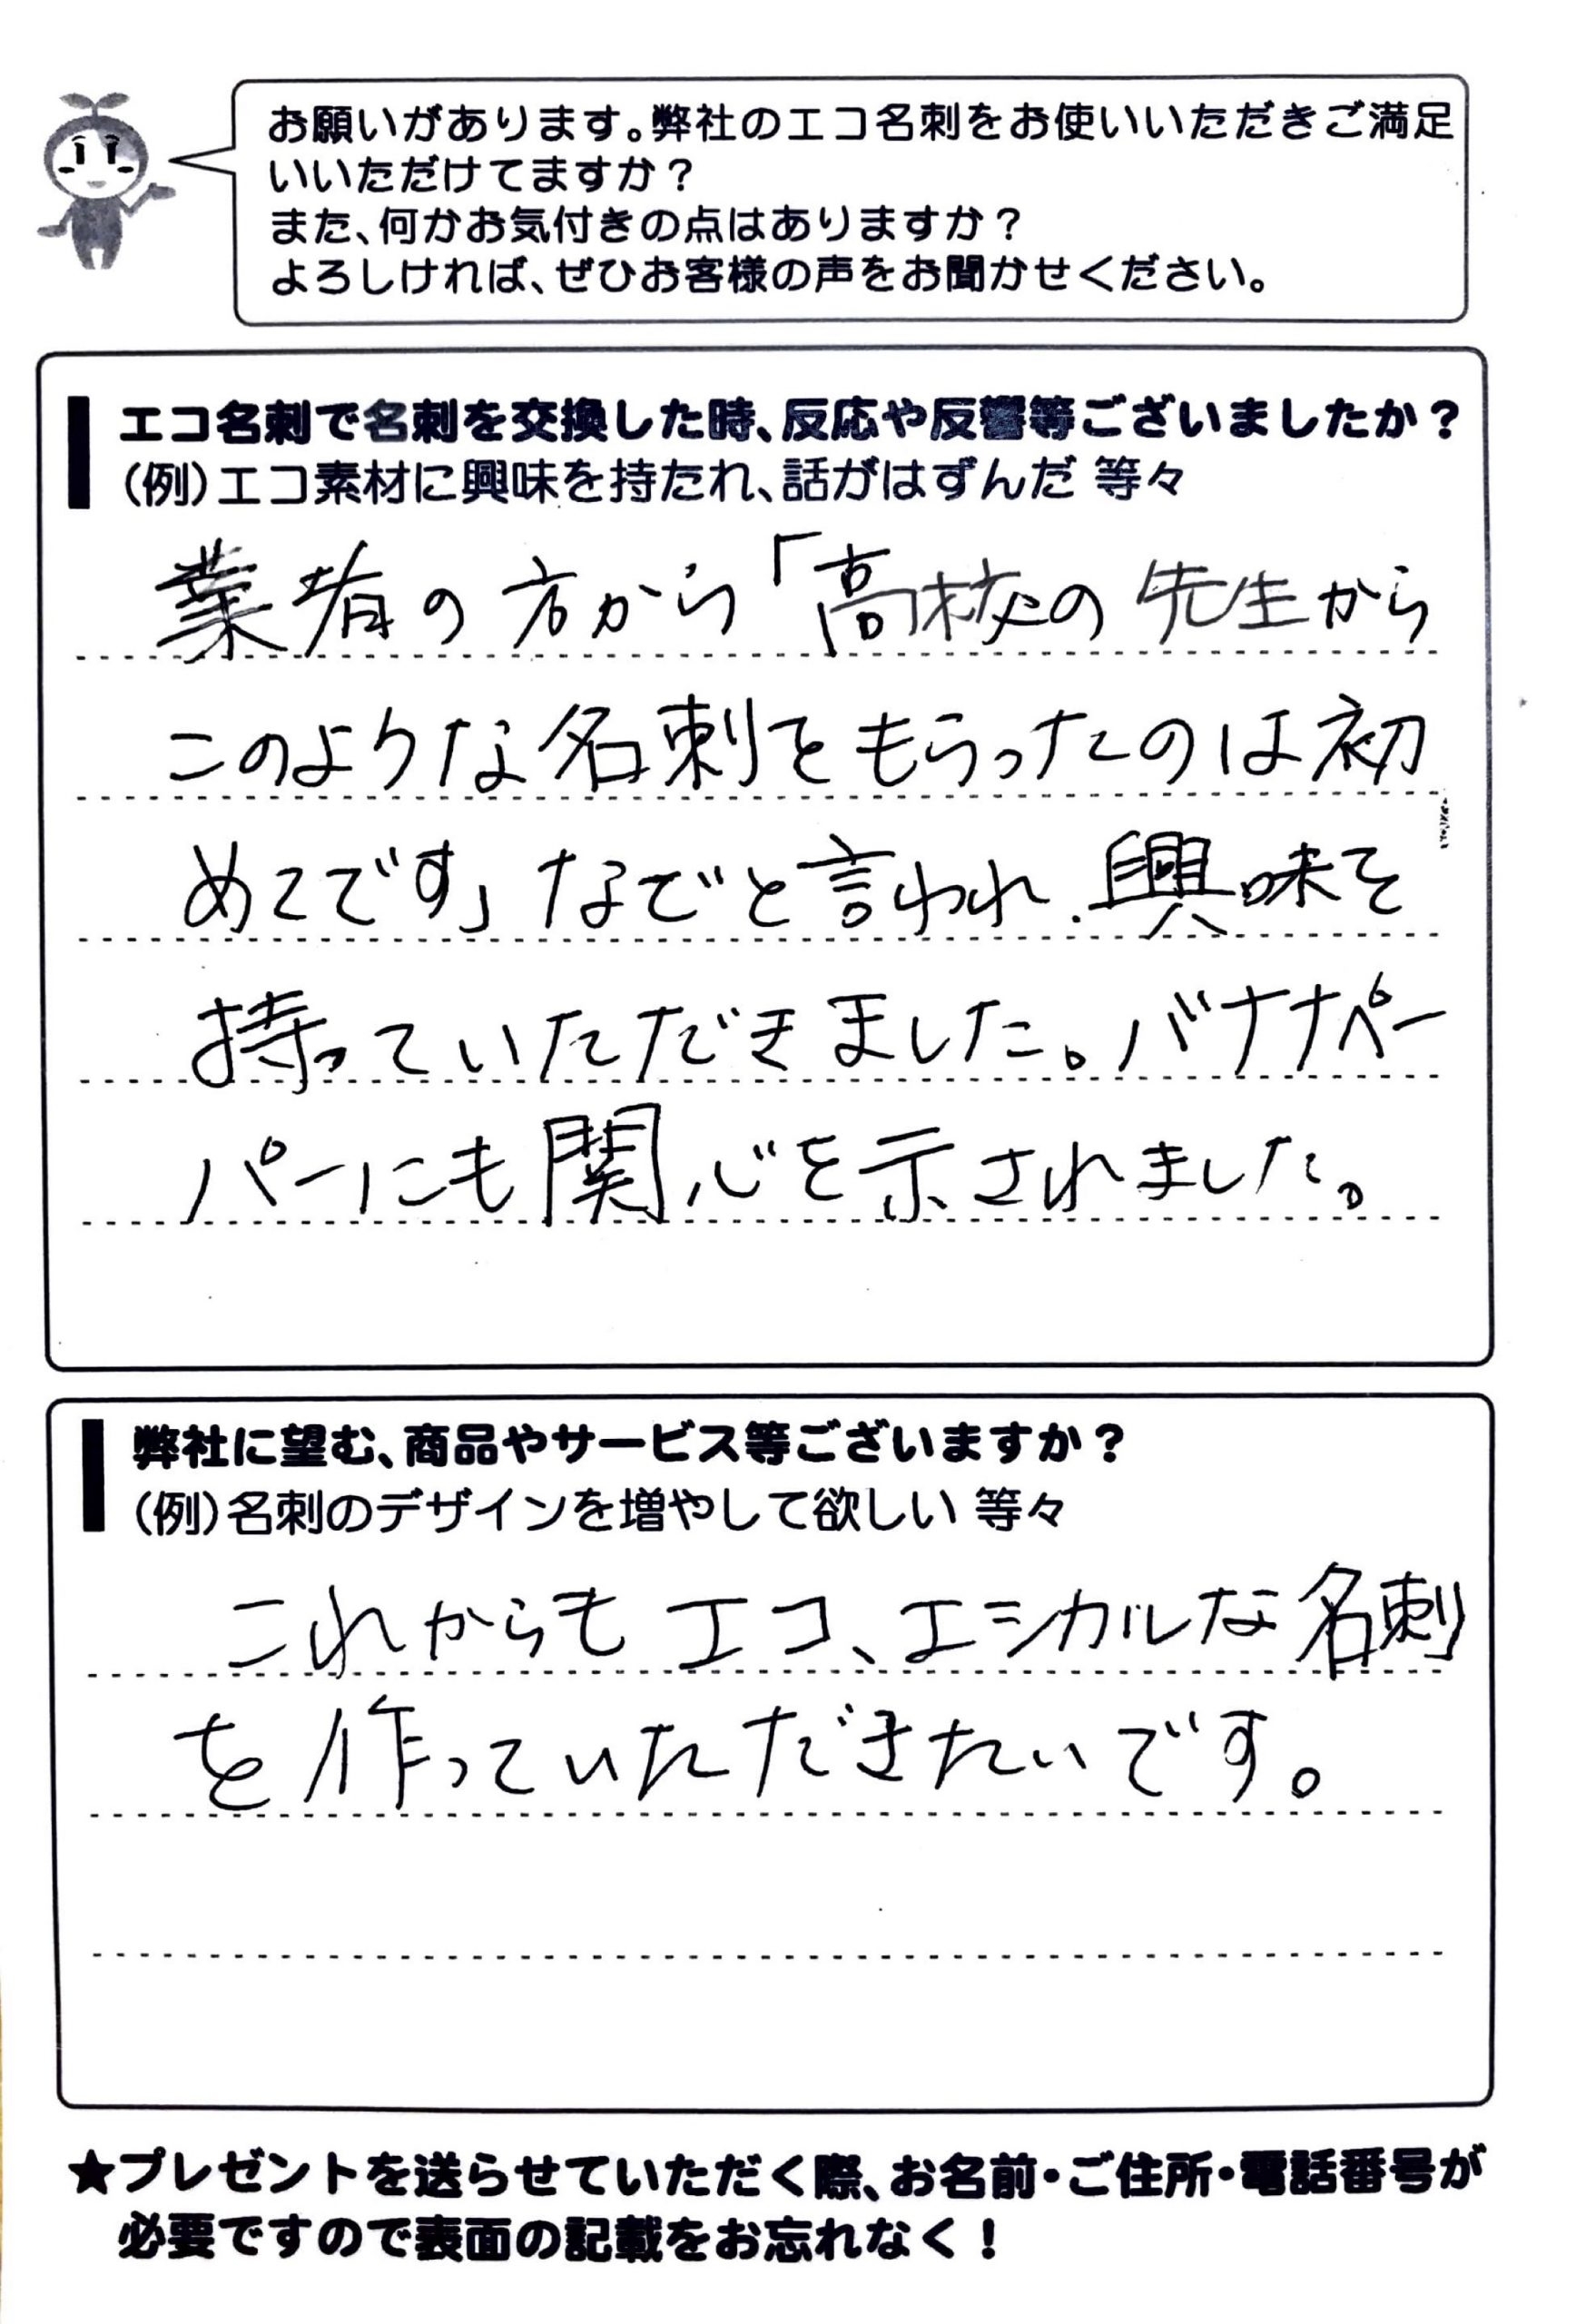 お願いがあります。弊社のエコ名刺をお使いいただきご満足
いいただけてますか？
また、何かお気付きの点はありますか？
よろしければ、ぜひお客様の声をお聞かせください。
エコ名刺で名刺を交換した時、反応や反響等ございましたか？
（例）エコ素材に興味を持たれ、話がはずんだ 等々
業者の方から「高校の先生から
このような名刺をもらったのは初
めてです」などと言われ、興味を
持っていただきました。バナナペー
パーにも関心を示されました。
弊社に望む、商品やサービス等ございますか？
（例）名刺のデザインを増やして欲しい 等々
これからもエコ、エシカルな名刺
を作っていただきたいです。
★プレゼントを送らせていただく際、お名前・ご住所・電話番号が
必要ですので表面の記載をお忘れなく！